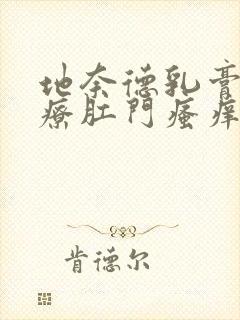 地奈德乳膏
療肛門瘙痒
肯德尔